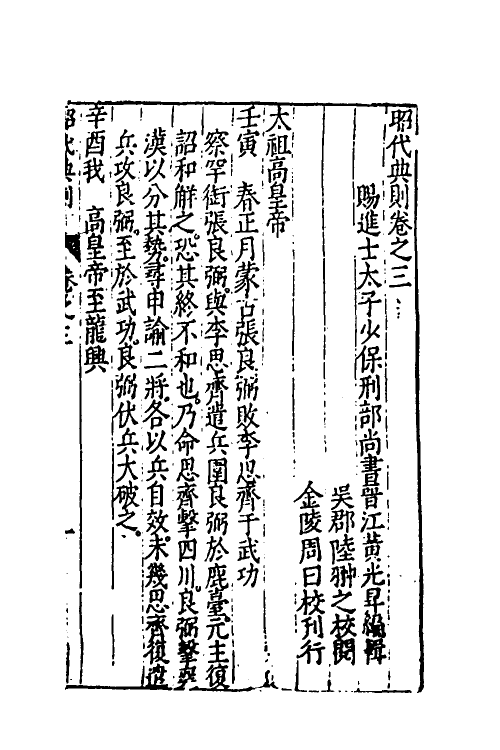 昭代典則卷之三
賜進士太子少保刑部尚書晉江黃光昇編輯
吳郡陸翀之校閱
金陵周曰校刊行
太祖高皇帝
壬寅　春正月蒙古張良弼敗李思齊于武功
察罕銜張良弼與李思齊遣兵圍良弼於鹿臺元主復
詔和解之恐其終不和也乃命思齊擊四川良弼擊襄
漢以分其勢尋申諭二將各以兵自效未幾思齊復遣
兵攻良弼至於武功良弼伏兵大破之
辛酉我　高皇帝至龍興
昭代典則　卷之三　一